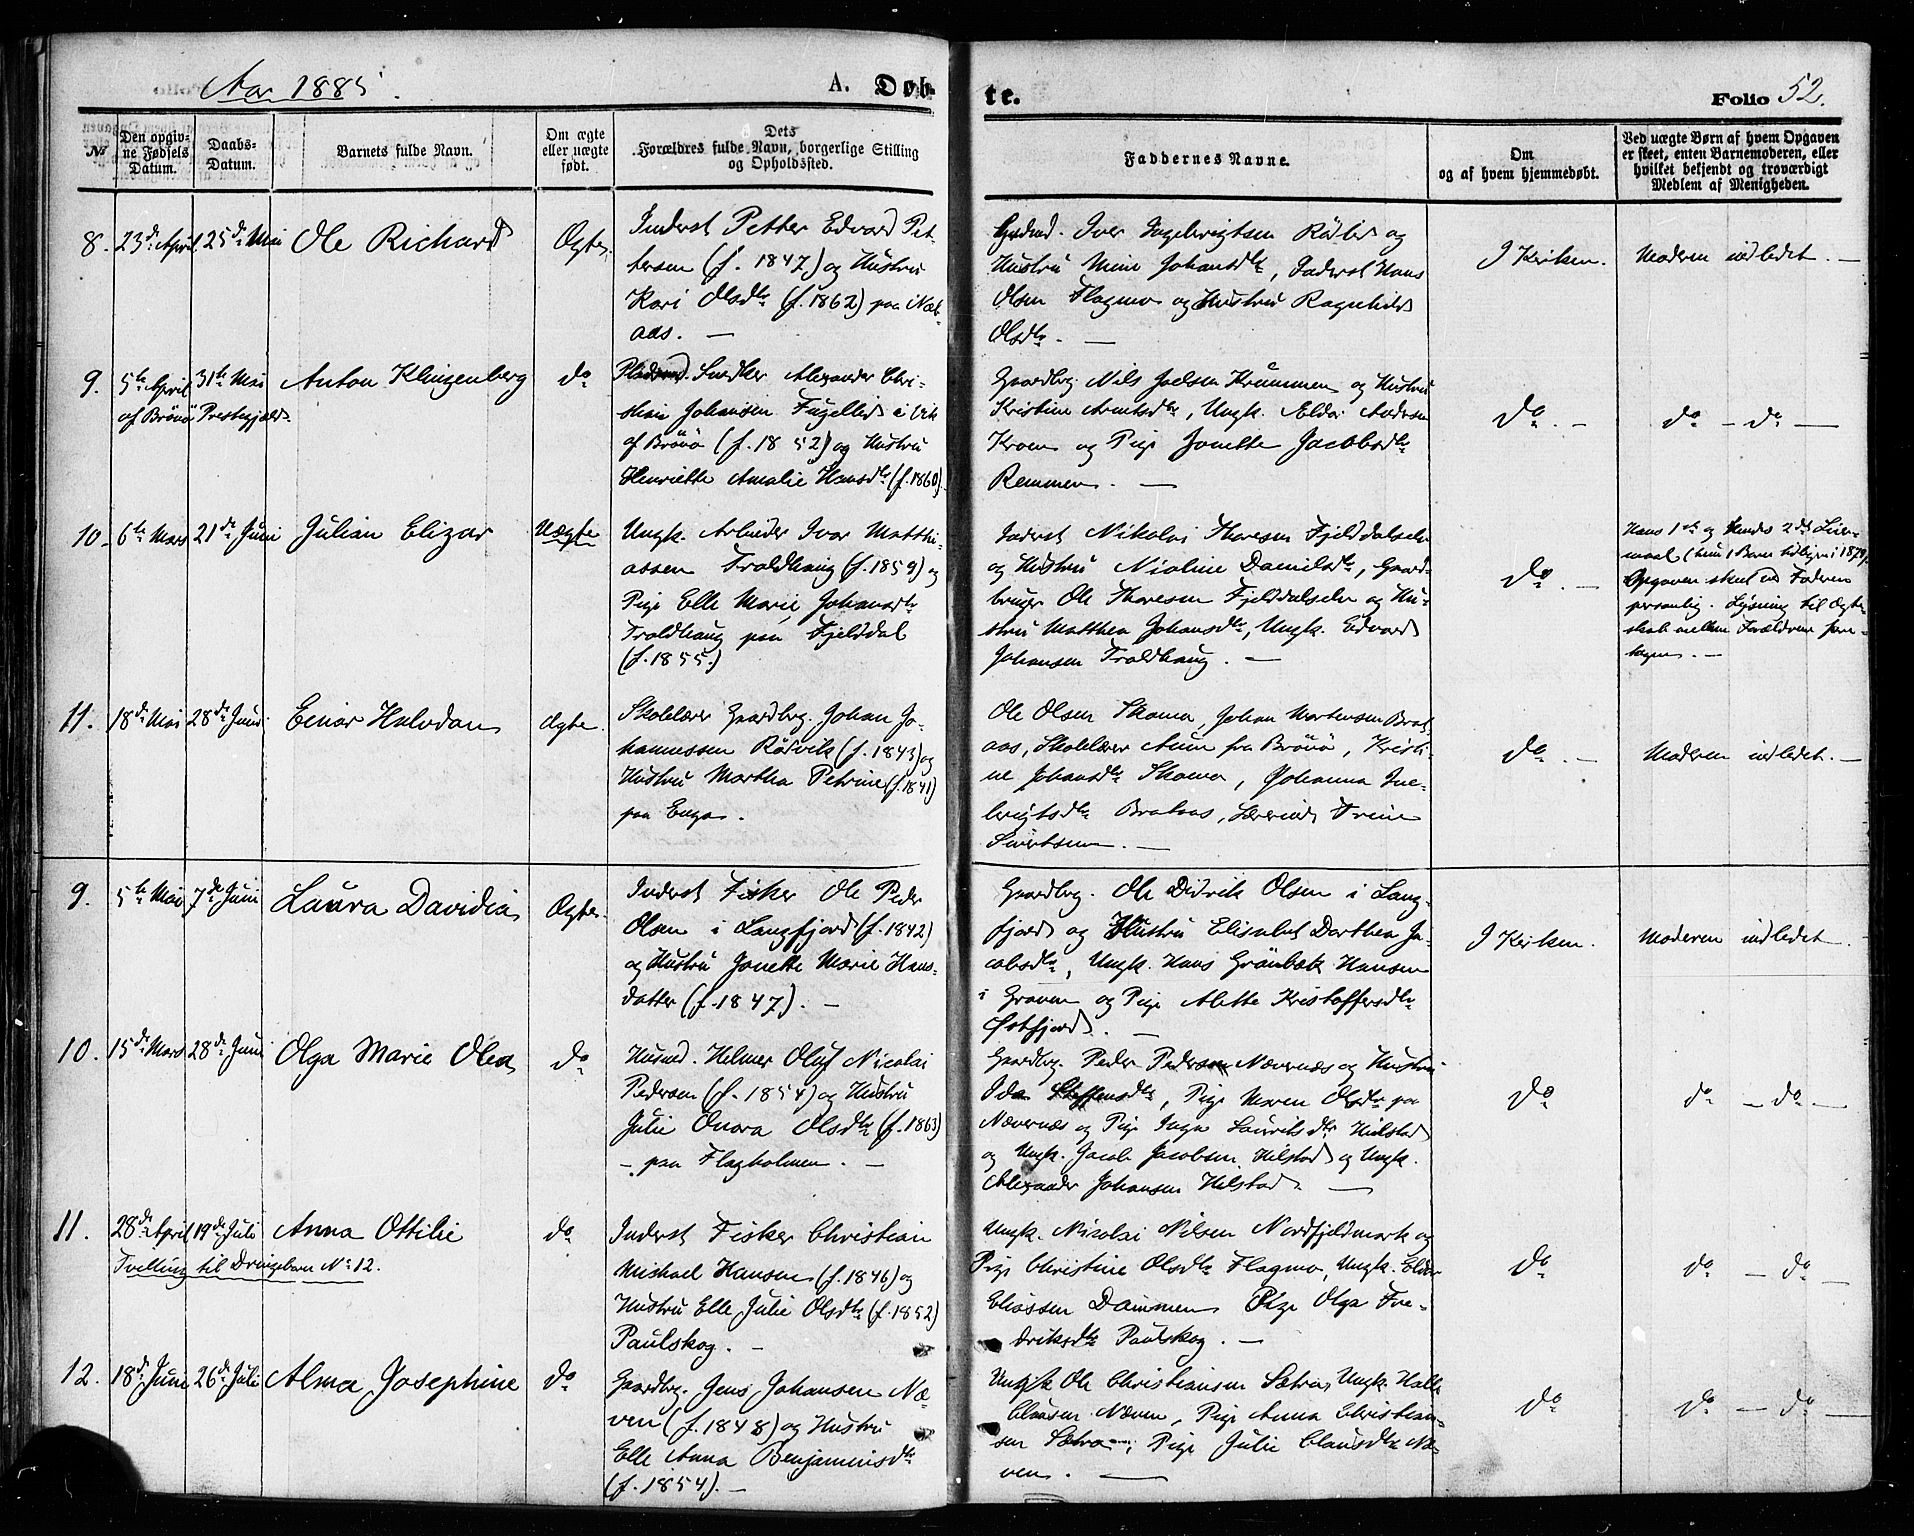 Aar 1885.
A. Døb-
te.
Folio 52.
No
Den opgiv-
ne Fødsels
Datum.
Daabs-
Datum.
Barnets fulde Navn.
Om ægte
eller uægte
født.
Dets
Forældres fulde Navn, borgerlige Stilling
og Opholdssted.
Faddernes Navne.
Om
og af hvem hjemmedøbt.
Ved uægte Børn af hvem Opgaven
er skeet, enten Barnemoderen, eller
hvilket bekjendt og troværdigt
Medlem af Menigheden.
8. 23de April 25de Mai Ole Richard Ægte
Inderst Petter Edvard Pet-
tersen (f. 1847) og Hustru
Kari Olsdtr (f. 1862) paa
aas. —
Iver Ingebrigtsen og
Hustru Johansdtr, Inderst Hans
Olsen Flagmo og Hustru Ragnhild
Olsdtr. —
I Kirken.
Moderen indledet. —
9. 5te April 31te Mai Anton Klingenberg do
af Brönö Prestegjæld.
Snedker Alexander Chri-
stian Johansen Fugellid i Vik
af Brönö (f. 1852) og Hustru
Henriette Amalie Hansdtr (f. 1860).
Gaardbrg. Nils Joelsen Krummen og Hustru
Kristine Arntsdtr, Ungk. Eldor Andersen
Kroen og Pige Jonette Jacobsdtr
Remmen. —
do. —
do — do —
10. 6te Mars 21de Juni Julian Elizar Uægte
Ungk. Arbeider Ivar Matthi-
assen Troldhaug (f. 1859) og
Pige Elle Marie Johansdtr
Troldhaug paa Fjelddal
(f. 1855.)
Inderst Nikolai Thoresen Fjelddalselv
og Hustru Nioline Danielsdtr, Gaard-
bruger Ole Thoresen Fjelddalselv og Hu-
stru Matthea Johansdtr, Ungk. Edvard
Johansen Troldhaug. —
do. —
Hans 1ste og hendes 2det Leier-
maal (hun 1 Barn tidligere i 1879).
Opgaven skeet ved Faderen
personlig. Lysning til Ægte-
skab mellem Forældrene fore-
tagen. —
11. 18de Mai 28de Juni Einar Halvdan Ægte.
Skolelærer Gaardbrg. Johan Jo-
hannessen Rödvik (f. 1843) og
Hustru Martha Petrine (f. 1841)
paa Enga.
Ole Olsen Skomo, Johan Mortensen Brat-
aas, Skolelærer Aune fra Brönö, Kristi-
ne Johansdtr Skomo, Johanna Inge-
brigtsdtr Brataas, Lærerinde Trine
Sivertsen. —
do. —
Moderen indledet. —
9. 5te Mai 7de Juni Laura Davidia Ægte.
Inderst Fisker Ole Peder
Olsen i Langfjord (f. 1842)
og Hustru Jonette Marie Hans-
datter (f. 1847). —
Gaardbrg. Ole Didrik Olsen i Lang-
fjord og Hustru Elisabet Dorthea Ja-
cobsdtr, Ungk. Hans Grönbek Hansen
i Graven og Pige Alette Kristoffersdtr
Østfjord. —
I Kirken.
Moderen indledet.
10. 15de Mars 28de Juni Olga Marie Olea do
Husmd. Helmer Oluf Nicolai
Pedersen (f. 1854) og Hustru
Julie Onora Olsdtr (f. 1863)
— paa Flagholmen. —
Gaardbrg. Peder Pedersen Nævernæs og Hustru
Ida Steffensdtr, Pige Maren Olsdtr paa
Nævernæs og Pige Inga Lauritsdtr Hilstad
og Ungk. Jacob Jacobsen Hilstad og Ungk.
Alexander Johansen Hilstad. —
do
do — do —
11. 28de April 19de Juli Anna Ottilie do
Tvilling til Drengebarn No 12.
Inderst Fisker Christian
Michael Hansen (f. 1846) og
Hustru Elle Julie Olsdtr (f. 1852)
Paulskog. —
Ungk. Nicolai Nilsen Nordfjeldmark og
Pige Christine Olsdtr Flagmo, Ungk. Eldor
Eliassen Dammen Pige Olga Fre-
driksdtr Paulskog. —
do
do — do —
12. 18de Juni 26de Juli Alma Josephine do
Gaardbrg. Jens Johansen Næ-
ven (f. 1848) og Hustru
Elle Anna Benjaminsdtr
(f. 1854). —
Ungk Ole Christiansen Sætra, Ungk. Halle
Clausen Næven, Pige Anna Christian-
sen Sætra, Pige Julie Clausdtr Næ-
ven. —
do
do — do —